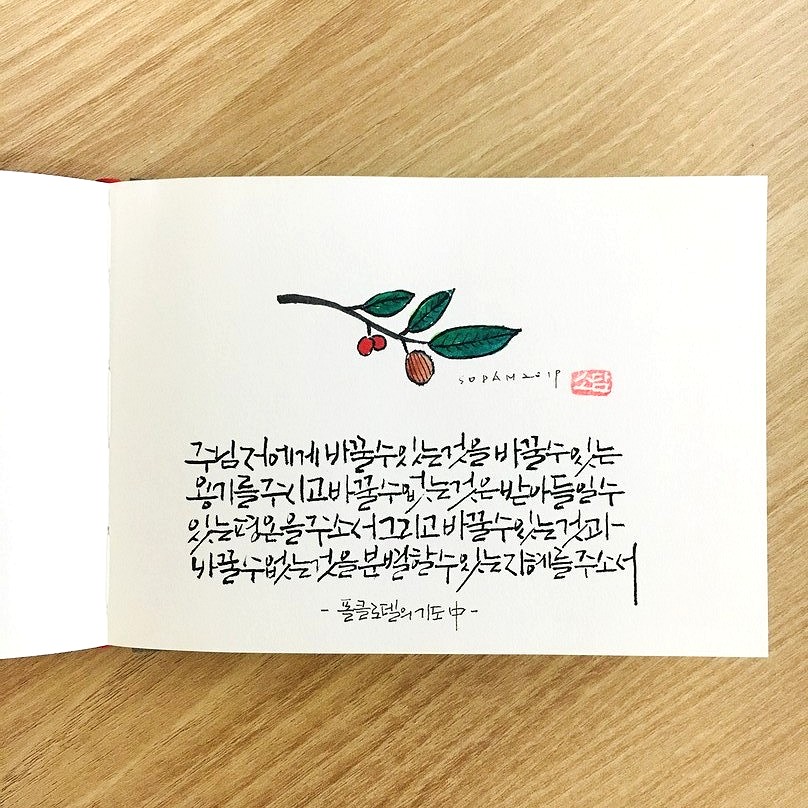 SODAM 2019 소담
주님 저에게 바꿀 수 있는 것을 바꿀 수 있는
용기를 주시고 바꿀 수 없는 것은 받아들일 수
있는 평온을 주소서 그리고 바꿀 수 있는 것과
바꿀 수 없는 것을 분별할 수 있는 지혜를 주소서
- 폴클로델의 기도 中 -